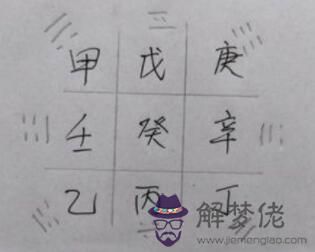 甲 戊 庚
壬 癸 辛
乙 丙 丁
解梦佬
www.jiemenglao.com